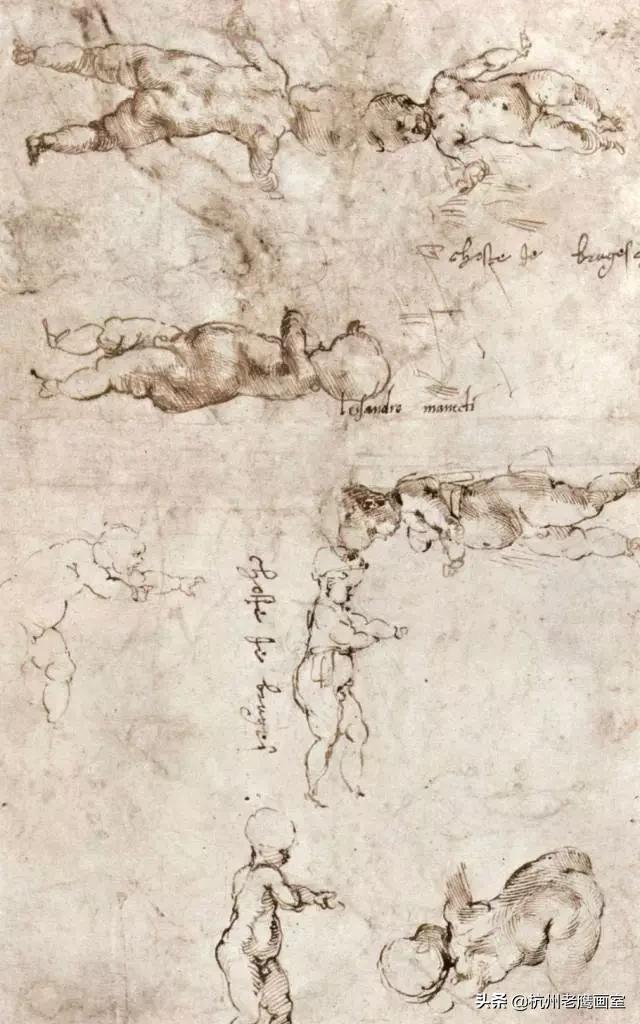 chosse de bruges
lesandro manecti
chosse de bruges
头条 @杭州老鹰画室